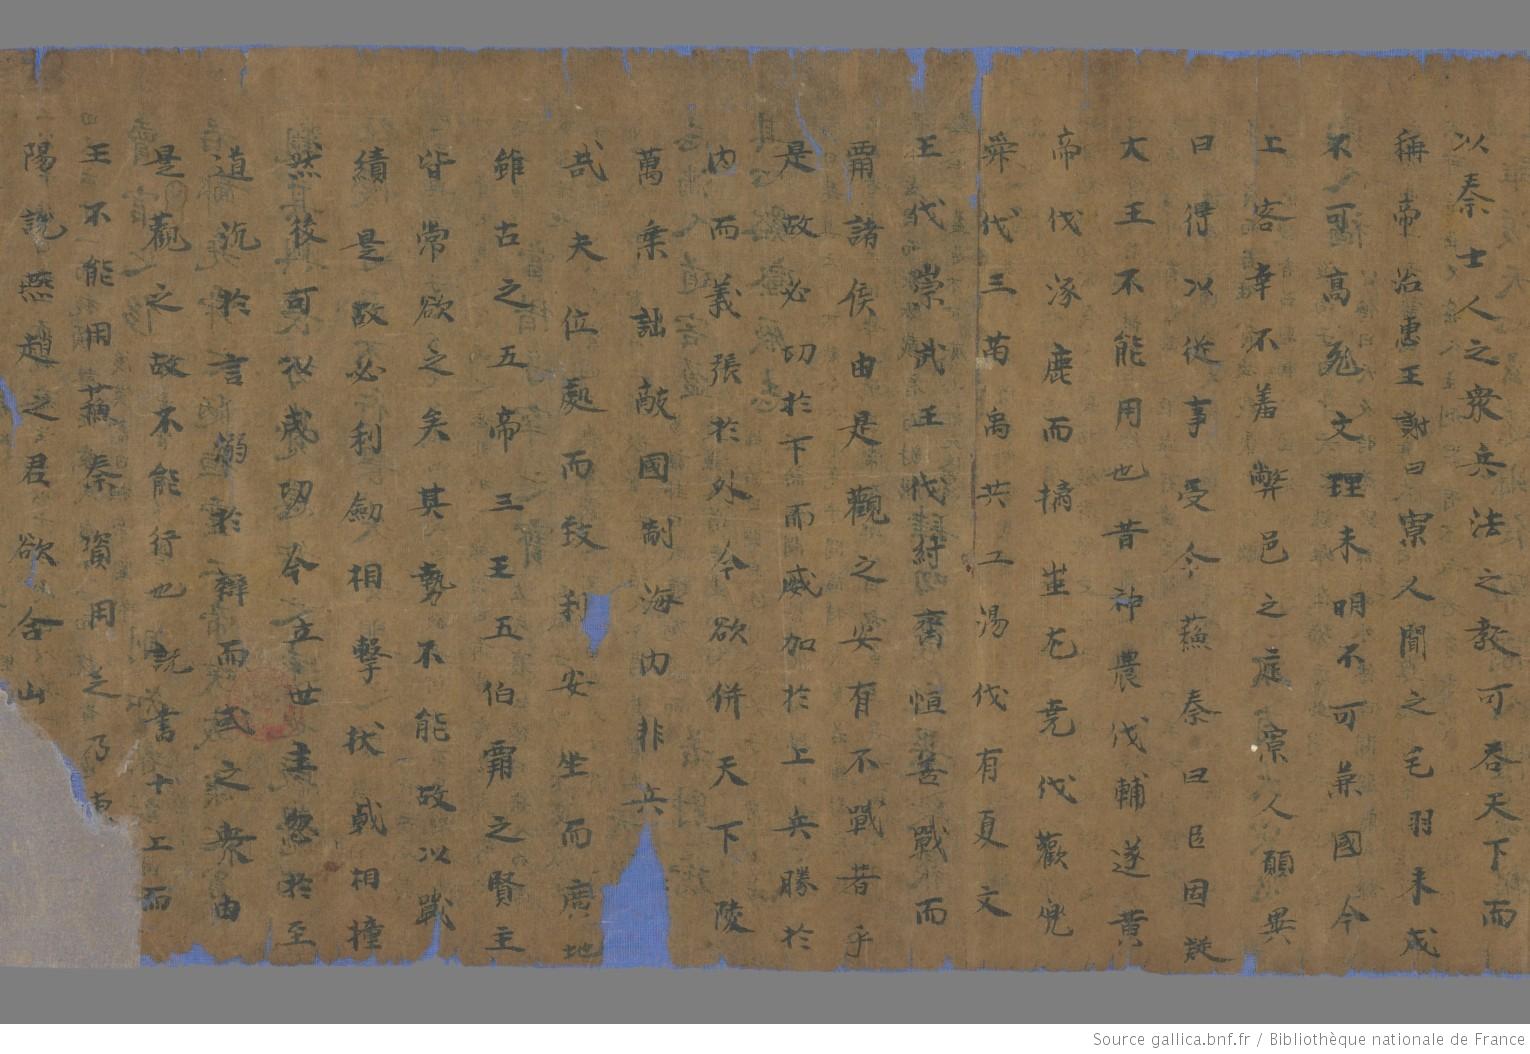 以秦士人之衆兵法之教可吞天下而
稱帝治惠王謝曰寡人聞之毛羽未成
不可高飛文理未明不可兼國今
上客幸不羞弊邑之庭寡人願異
日得以從事受令蘇秦曰臣固疑
大王不能用也昔神農伐輔遂黃
帝伐涿鹿而擒蚩尤堯代歡兜
舜代三苗禹共工湯伐有夏文
王代崇武王伐紂齊恒善戰而
霸諸侯由是觀之安有不戰者乎
是故必切於下而威加於上兵勝於
內而義張於外今欲併天下陵
萬乗詘敵國制海內非兵
㢤夫位處而致利安坐而廣地
雖古之五帝三王五伯霸之賢主
皆常欲之矣其勢不能故以戰
續是故必利劍相擊杖戟相撞
然後可以成功今立世主忽於至
道沉於言溺於辯而或之衆由
是觀之故不能行也說書十上而
王不能用蘇秦資用之乃
陽說燕趙之君欲合山
Source gallica.bnf.fr / Bibliothèque nationale de France